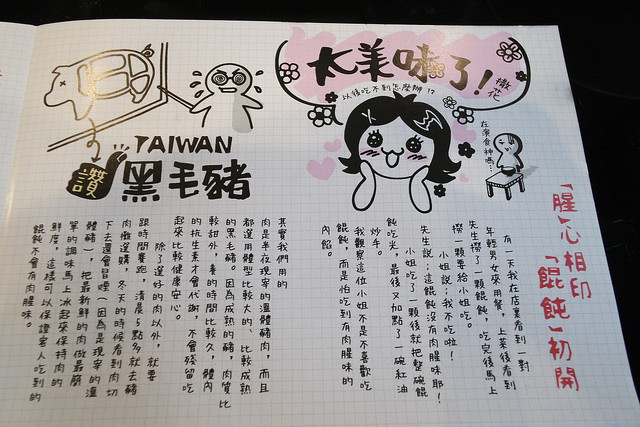 太美味了!
撒花
以後吃不到怎麼辦!?
在演食神嗎…
TAIWAN
讚
黑毛豬
「腥」心相印
「餛飩」初開
有一天我在店裏看到一對
年輕男女來用餐,上菜後看到
先生撈了一顆餛飩,吃完後馬上
撈一顆要給小姐吃。
小姐說:我不吃啦!
先生說:這餛飩沒有肉腥味耶!
小姐吃了一顆後就把整碗餛
飩吃光,最後又加點了一碗紅油
炒手。
我觀察這位小姐不是不喜歡吃
餛飩,而是怕吃到有肉腥味的
內餡。
其實我們用的
肉是半夜現宰的溫體豬肉,而且
都選用體型比較大的、比較成熟
的黑毛豬。因為成熟的豬,肉質比
較甜外,養的時間比較久,體內
的抗生素才會代謝,不會殘留吃
起來比較健康安心。
除了選好的肉以外,就要
跟時間賽跑,清晨5點多就去豬
肉攤選購,冬天的時候看到肉切
下去還會冒煙(因為是現宰的溫
體豬),把最新鮮的肉做最簡
單的調味馬上冰起來保持肉的
鮮度,這樣可以保證客人吃到的
餛飩不會有肉腥味。